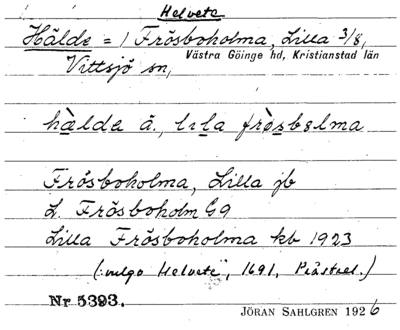 Helvete
Hälde = 1 Frösboholma, Lilla 3/8,
Västra Göinge hd, Kristianstad län
Vittsjö sn,
hàlda å., lɩla frò̤sbɘlma
Frösboholma, Lilla jb
L. Frösboholm G9
Lilla Frösboholma kb 1923
(:vulgo Helvete", 1691, Prästrel.)
Nr 5393.
JÖRAN SAHLGREN 1926